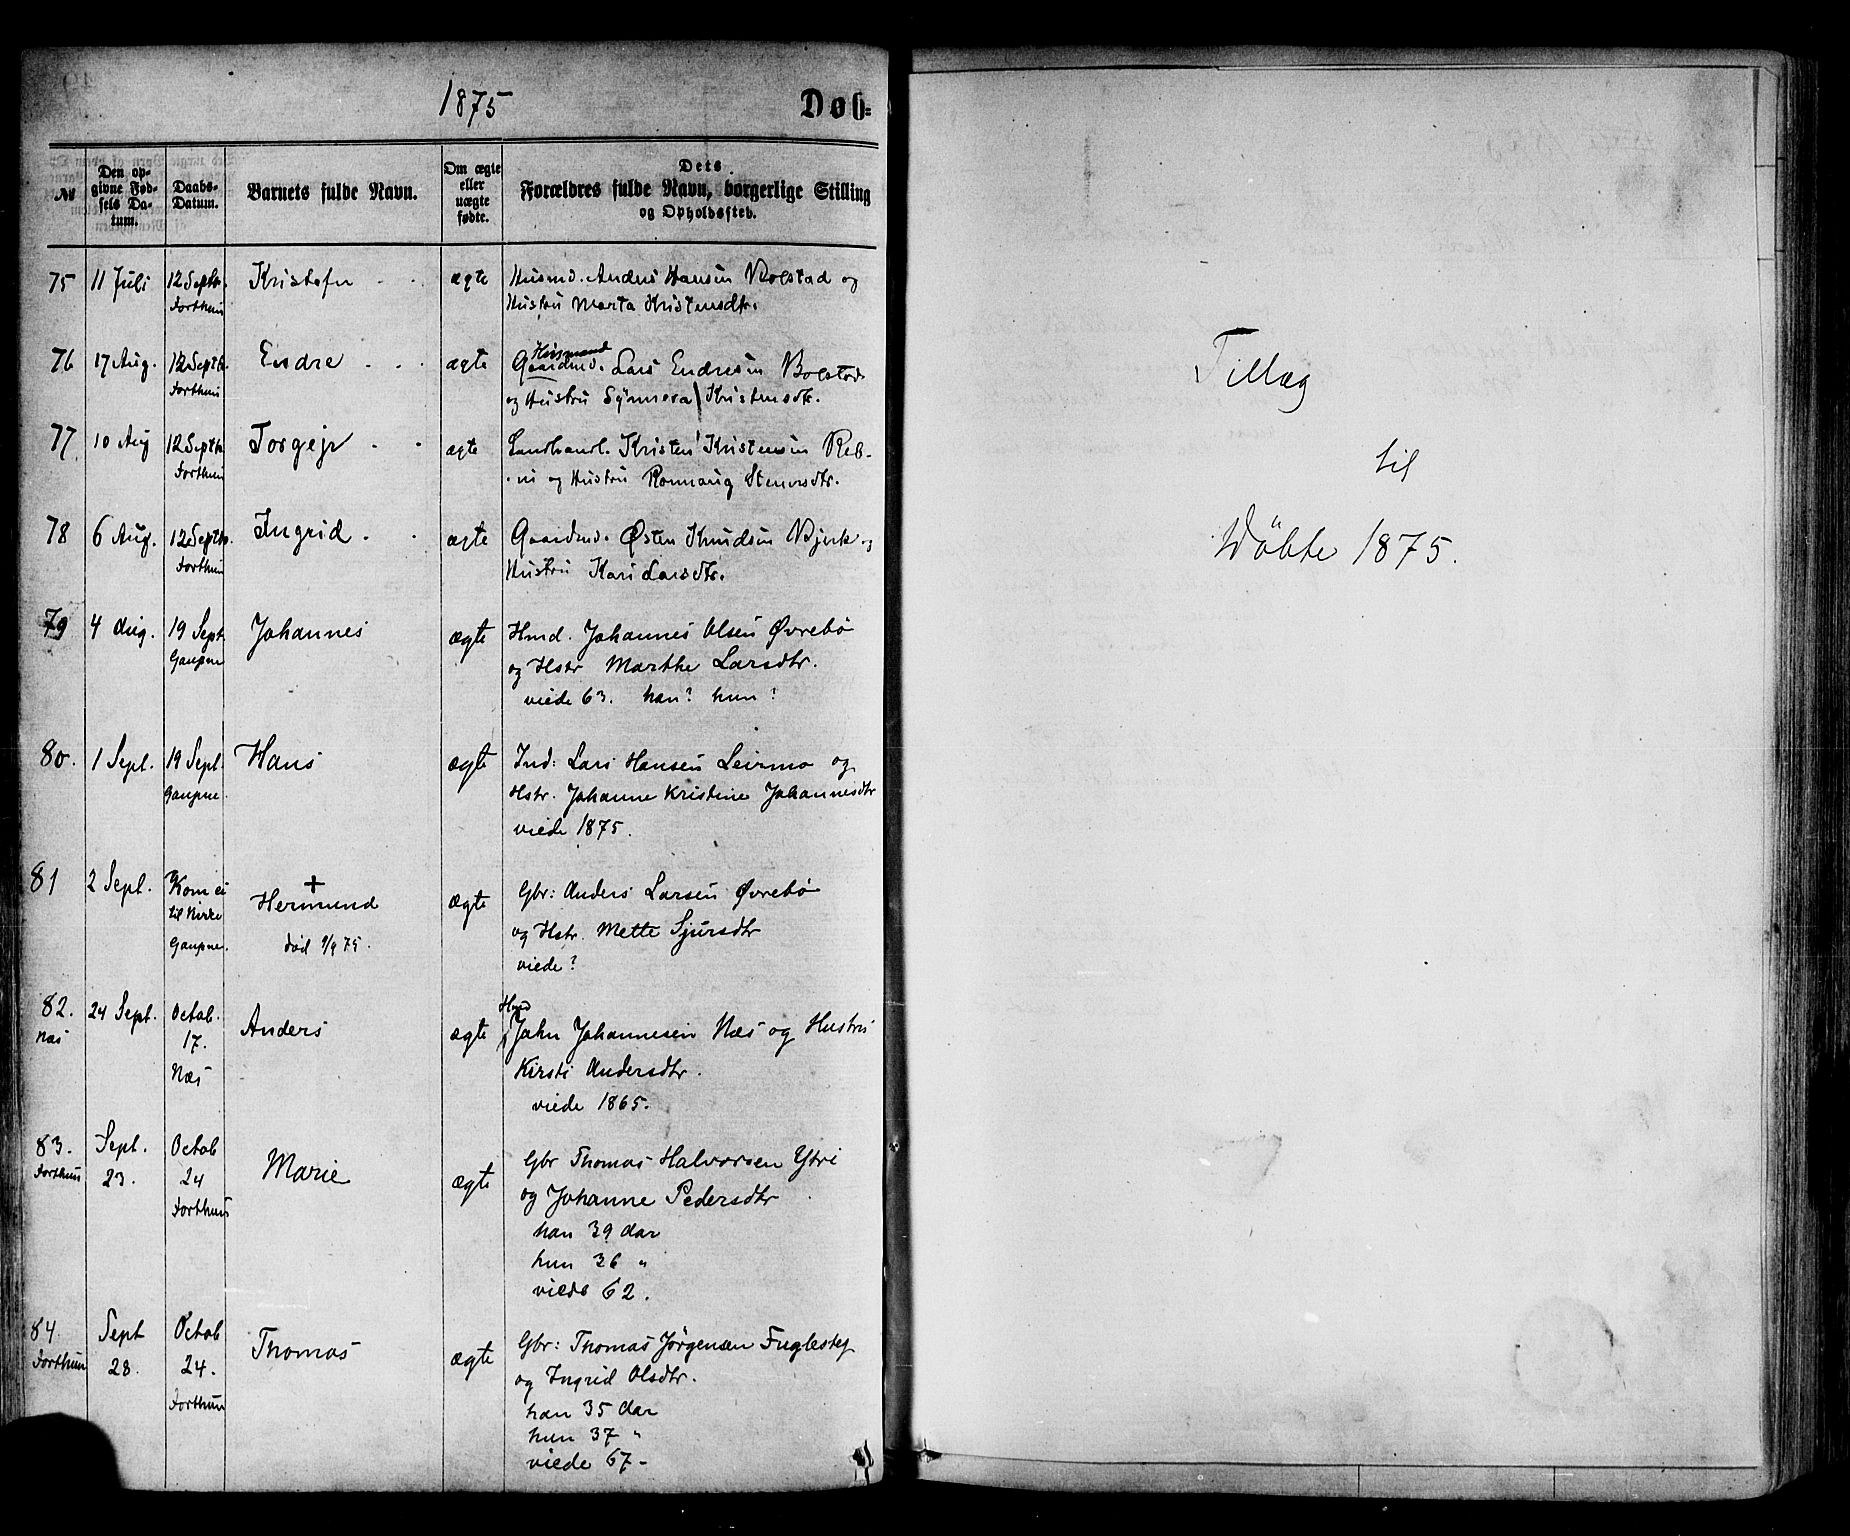 1875
Døb=
№
Den op-
givne Fød-
sels Da-
tum.
Daabs-
Datum.
Barnets fulde Navn.
Om ægte
eller
uægte
fødte.
Dets
Forældres fulde Navn, borgerlige Stilling
og Opholdssted.
75 11 Juli 12 Septb. Kristofer ægte Husmd. Anders Hansen Bolstad og
Forthun Hustru Marta Kristensdtr.
Husmand
76 17 Aug. 12 Septb. Endre ægte Gaardmd. Lars Endresen Bolstad
Forthun og Hustru Synneva Kristensdtr.
77 10 Aug 12 Septb. Torgejr ægte Landhandl. Kristen Kristensen Reb-
Forthun ni og Hustru Rannavig Stenersdtr.
78 6 Aug. 12 Septb. Ingrid ægte Gaardmd. Østen Knudsen Bjerk og
Forthun Hustru Kari Larsdtr.
79 4 Aug. 19 Sept. Johannes ægte Hmd. Johannes Olsen Øvrebø
Gaupne og Hstr. Marthe Larsdtr.
viede 63. han? hun?
80. 1 Sept. 19 Sept. Hans ægte Ind: Lars Hansen Leirmo og
Gaupne. Hstr. Johanne Kristine Johannesdtr
viede 1875.
81 2 Sept. Kom ei + Gbr: Anders Larsen Øvrebø
til Kirke Hermund ægte og Hstr. Mette Sjursdtr
Gaupne. død 9/9 75. viede?
82. 24 Sept. Octob. Anders ægte Hmd Jahn Johannesen Næs og Hustru
Næs 17. Kirsti Andersdtr.
Næs viede 1865.
83. Sept. Octob Marie ægte Gbr Thomas Halvorsen Ytri
Forthun 23. 24 og Johanne Pedersdtr
Forthun han 39 Aar
hun 36 "
viede 62.
84. Sept Octob Thomas ægte Gbr: Thomas Jörgensen Fuglesteg
Forthun 28. 24. og Ingrid Olsdtr.
Forthun han 35 Aar
hun 37 "
viede 67-
Tillæg
til
Döbte 1875.